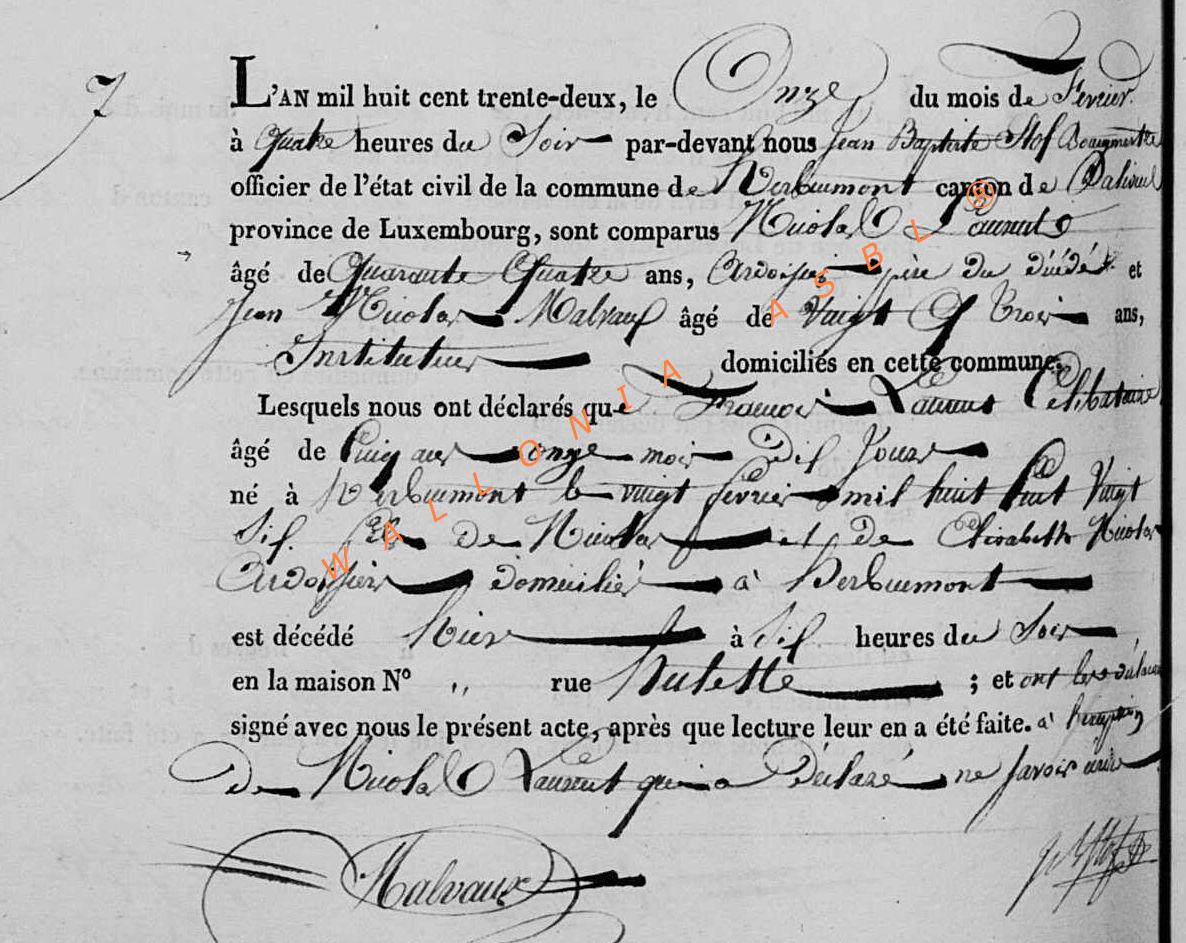 7
L'AN mil huit cent trente-deux, le Onze du mois de Fevrier
à quatre heures du Soir par-devant nous Jean Baptiste Stof Bourgmestre
officier de l'état civil de la commune de Herbeumont canton de Paliseul
province de Luxembourg, sont comparus Nicolas Laurent
âgé de Quarante Quatre ans, Ardoisier père du décédé et
Jean Nicolas Malvaux âgé de Vingt et Trois ans,
Instituteur domiciliés en cette commune.
Lesquels nous ont déclarés que François Laurent Célibataire
âgé de Cinq ans onze mois dix Jours
né à Herbeumont le vingt fevrier mil huit Cent Vingt
Six fils de Nicolas et de Elisabeth Nicolas
Ardoisier domicilié à Herbeumont
est décédé hier à Six heures du Soir
en la maison N° ,, rue ; et ont les déclarans
signé avec nous le présent acte, après que lecture leur en a été faite. à
de Nicolas Laurent qui a déclaré ne savoir écrire
Malvaux
WALLONIA ASBL ®